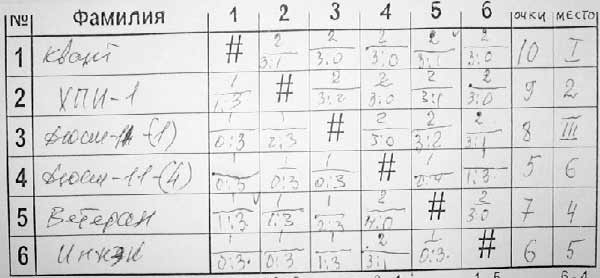 № Фамилия 1 2 3 4 5 6 ОЧКИ МЕСТО
1 Квант # 2 3:1 2 3:0 2 3:0 2 3:1 2 3:0 10 I
2 ХПИ-1 1 1:3 # 2 3:2 2 3:0 2 3:1 2 3:0 9 2
3 1 0:3 1 2:3 # 2 3:0 2 3:2 2 3:1 8 III
4 1 0:3 1 0:3 1 0:3 # 1 1 1:3 5 6
5 Ветеран 1 1:3 1 1:3 1 2:3 2 # 2 3:0 7 4
6 Инжэк 1 0:3 1 0:3 1 1:3 2 3:1 1 0:3 # 6 5